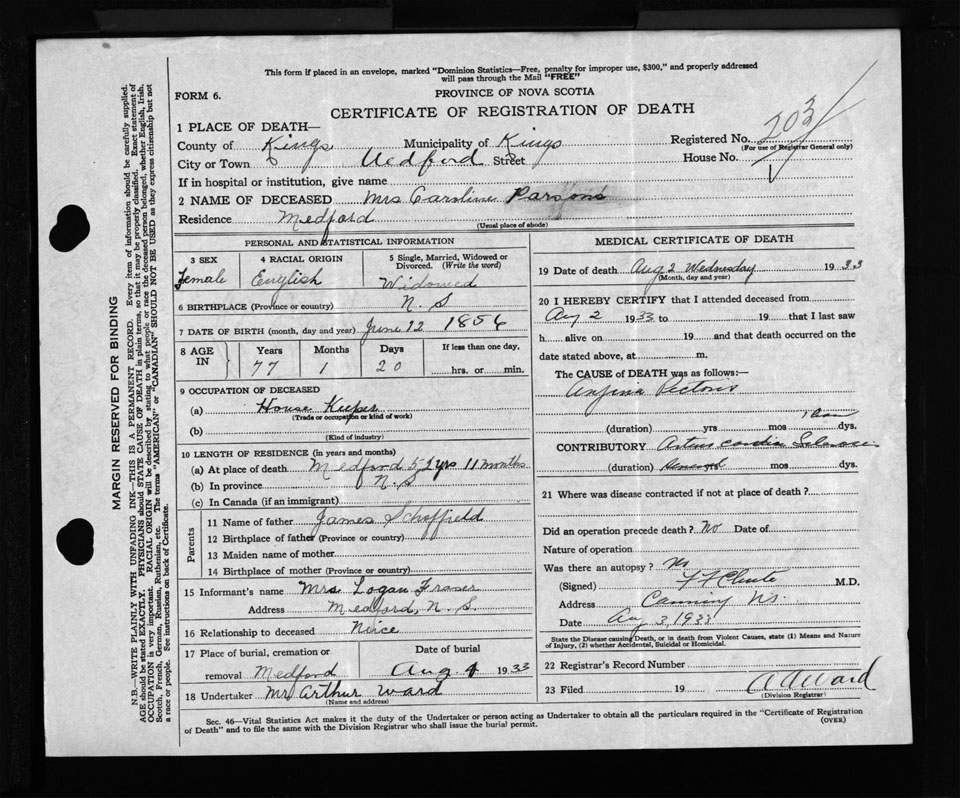 This form if placed in an envelope, marked "Dominion Statistics—Free, penalty for improper use, $300," and properly addressed
will pass through the Mail "FREE"
FORM 6.
PROVINCE OF NOVA SCOTIA
CERTIFICATE OF REGISTRATION OF DEATH
1 PLACE OF DEATH—
County of Kings Municipality of Kings Registered No. 203
(For use of Registrar General only)
City or Town Medford Street House No.
If in hospital or institution, give name
2 NAME OF DECEASED Mrs Caroline Parsons
Residence Medford
(Usual place of abode)
PERSONAL AND STATISTICAL INFORMATION
3 SEX 4 RACIAL ORIGIN 5 Single, Married, Widowed or
Divorced. (Write the word)
Female English Widowed
6 BIRTHPLACE (Province or country) N. S
7 DATE OF BIRTH (month, day and year) June 12 1856
8 AGE IN Years Months Days If less than one day,
77 1 20 hrs. or min.
9 OCCUPATION OF DECEASED
(a) House Keeper
(Trade or occupation or kind of work)
(b)
(Kind of industry)
10 LENGTH OF RESIDENCE (in years and months)
(a) At place of death Medford 52 yrs 11 months
(b) In province N. S
(c) In Canada (if an immigrant)
Parents
11 Name of father James Schoffield
12 Birthplace of father (Province or country)
13 Maiden name of mother
14 Birthplace of mother (Province or country)
15 Informant's name Mrs. Logan Fraser
Address Medford, N. S.
16 Relationship to deceased Niece
17 Place of burial, cremation or Date of burial
removal Medford Aug. 4 1933
18 Undertaker Mr Arthur Ward
(Name and address)
MEDICAL CERTIFICATE OF DEATH
19 Date of death Aug 2 Wednesday 1933
(Month, day and year)
20 I HEREBY CERTIFY that I attended deceased from
Aug 2 1933 to 19 that I last saw
h alive on 19 and that death occurred on the
date stated above, at m.
The CAUSE of DEATH was as follows:—
Angina Pectoris
(duration) yrs mos dys.
CONTRIBUTORY
(duration) mos dys.
21 Where was disease contracted if not at place of death?
Did an operation precede death? No Date of
Nature of operation
Was there an autopsy? No
(Signed) M.D.
Address Canning N.S.
Date Aug 3, 1933
State the Disease causing Death, or in death from Violent Causes, state (1) Means and Nature
of Injury, (2) whether Accidental, Suicidal or Homicidal.
22 Registrar's Record Number
23 Filed 19 Ward
(Division Registrar)
Sec. 46—Vital Statistics Act makes it the duty of the Undertaker or person acting as Undertaker to obtain all the particulars required in the "Certificate of Registration
of Death" and to file the same with the Division Registrar who shall issue the burial permit. (OVER)
MARGIN RESERVED FOR BINDING
N.B.—WRITE PLAINLY WITH UNFADING INK—THIS IS A PERMANENT RECORD. Every item of information should be carefully supplied.
AGE should be stated EXACTLY. PHYSICIANS should STATE CAUSE OF DEATH in plain terms, so that it may be properly classified. Exact statement of
OCCUPATION is very important. RACIAL ORIGIN will be described by stating to what people or race the deceased person belonged, whether English, Irish,
Scotch, French, German, Russian, Ruthenian, etc. The terms "AMERICAN" or "CANADIAN" SHOULD NOT BE USED as they express citizenship but not
a race or people. See instructions on back of Certificate.